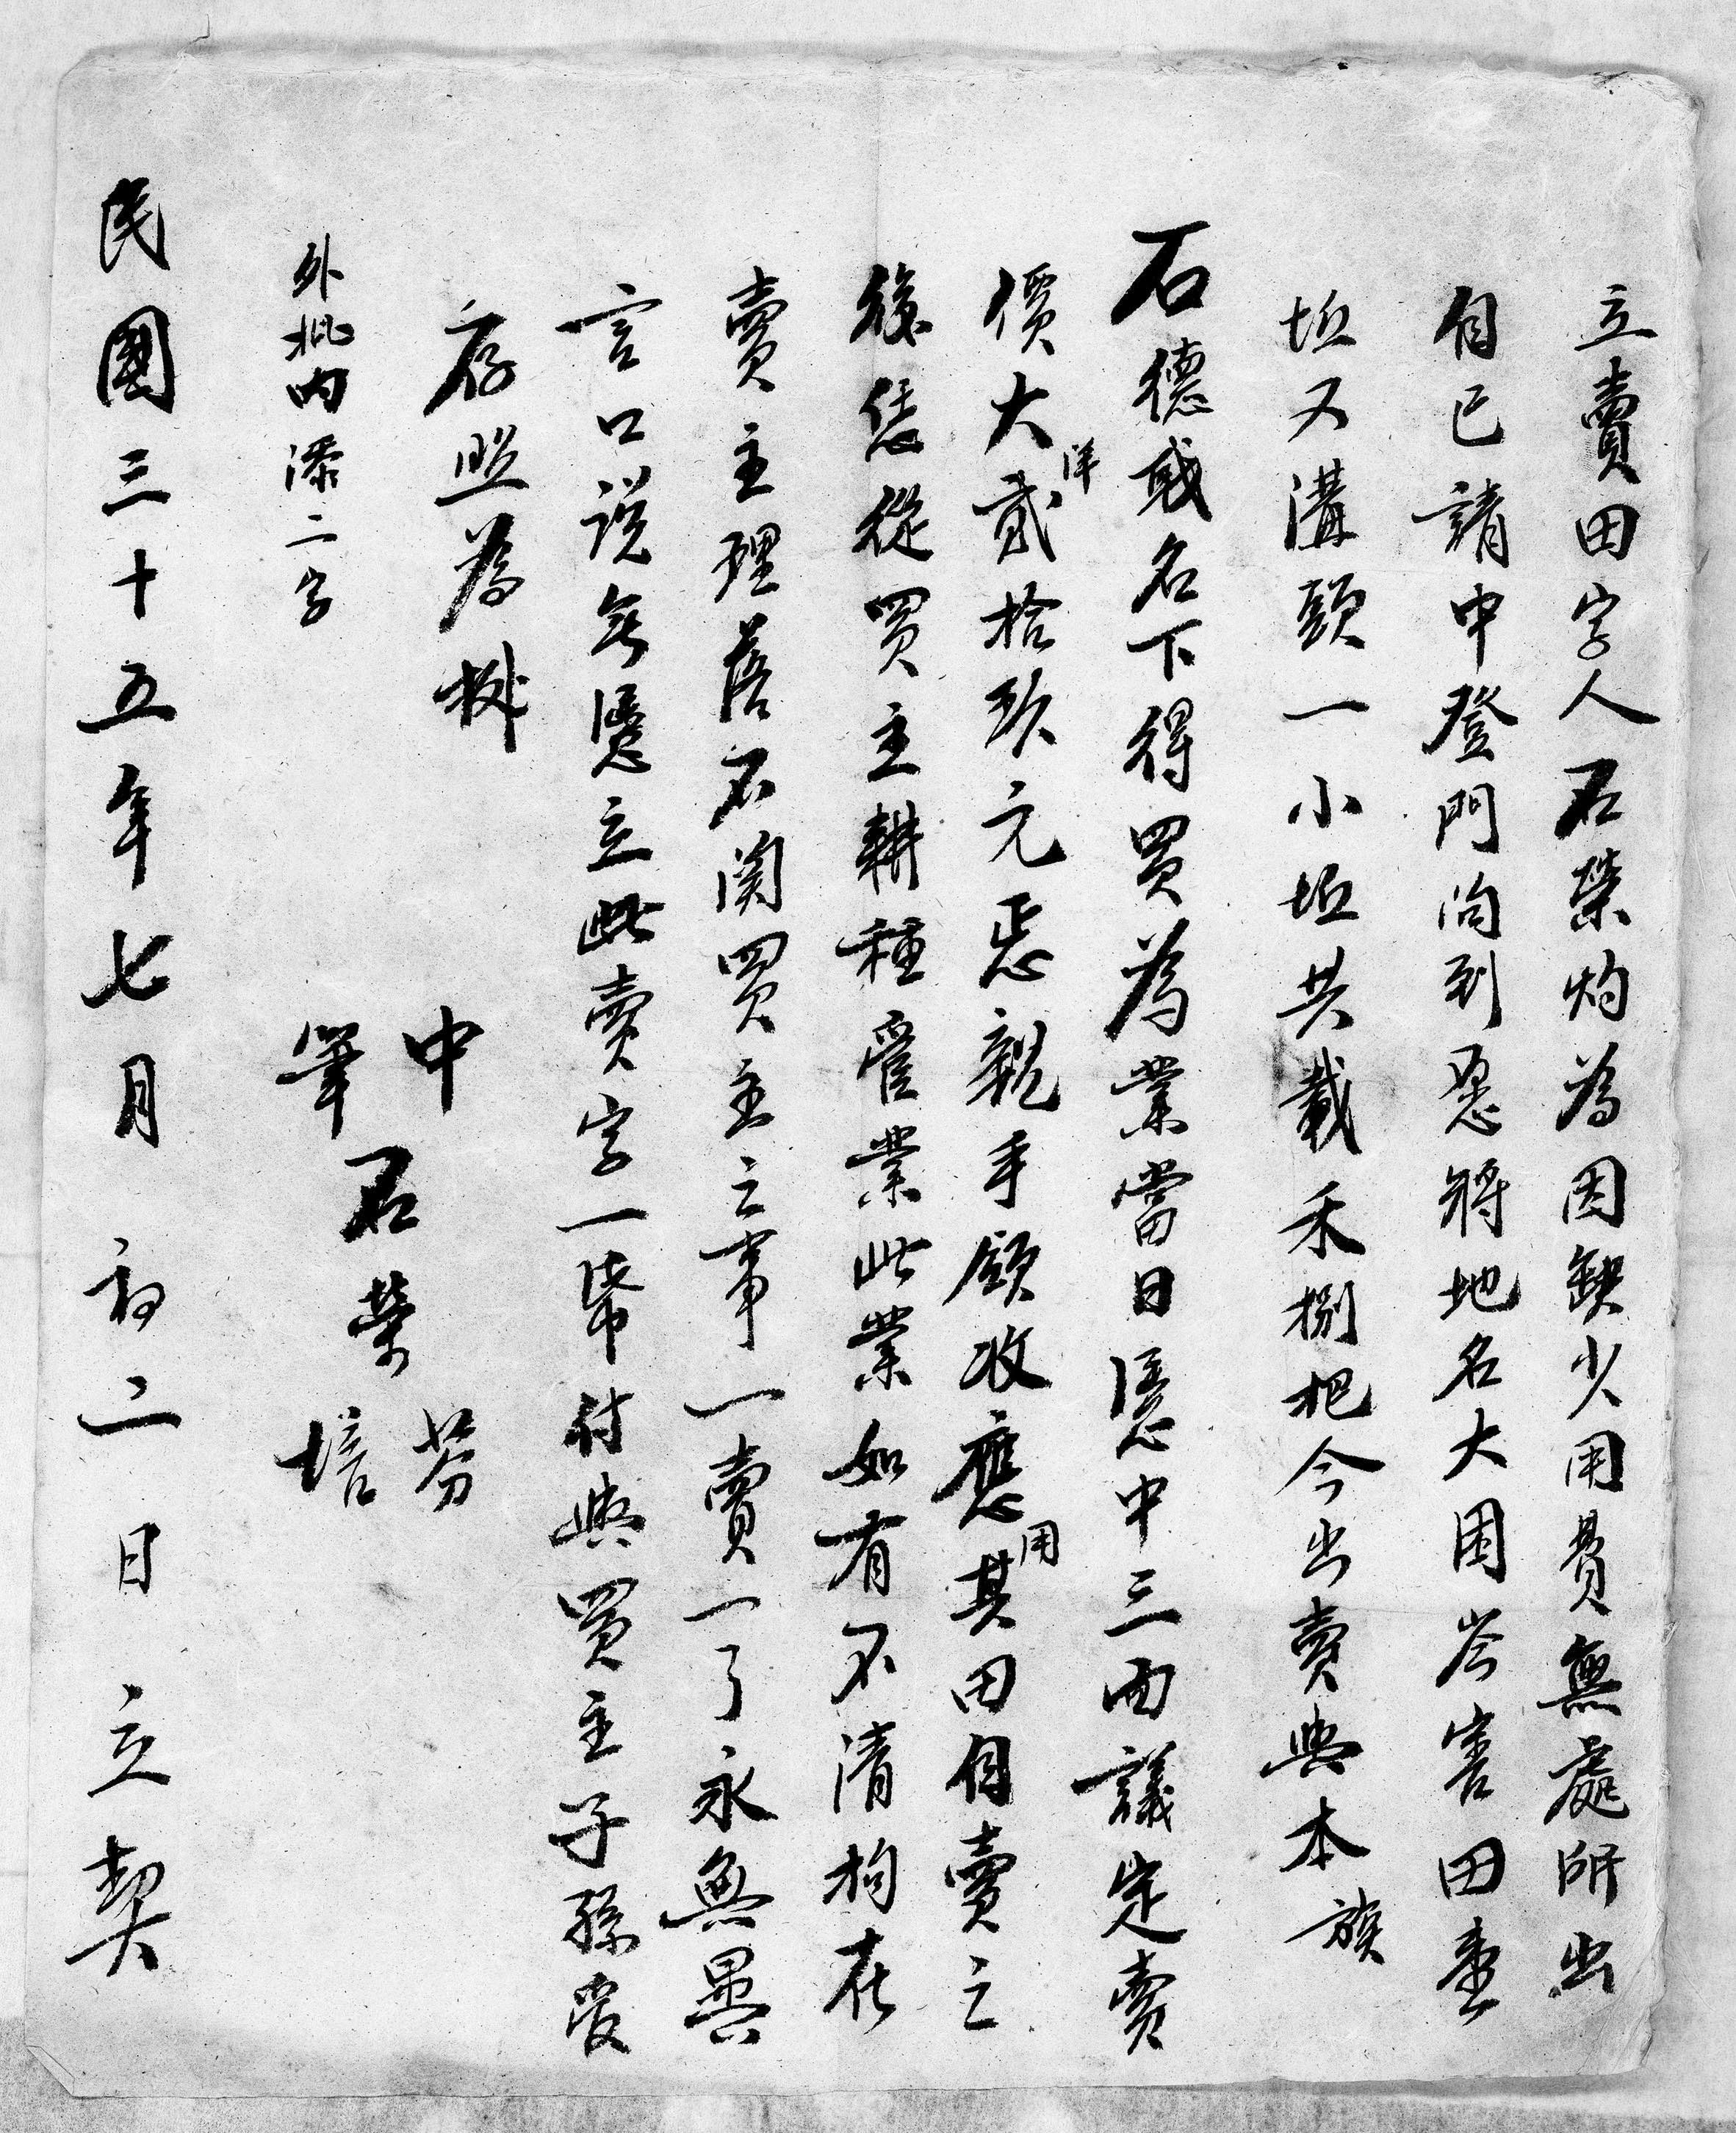 立賣田字人石榮灼為因缺少用費無處所出
自己請中登門向到愿將地名大困岑害田壹
坵又溝頭一小坵共載禾捌把今出賣與本族
石德成名下得買為業當日憑中三面議定賣
價大洋貳拾玖元正親手領收應用其田自賣之
後恁從買主耕種管業此業如有不清拘在
賣主理落不関買主之事一賣一了永無異
言口說無憑立此賣字一紙付與買主子孫收
存照為據
中 石榮芬
筆 石榮培
外批內添二字
民國三十五年七月初二日立契